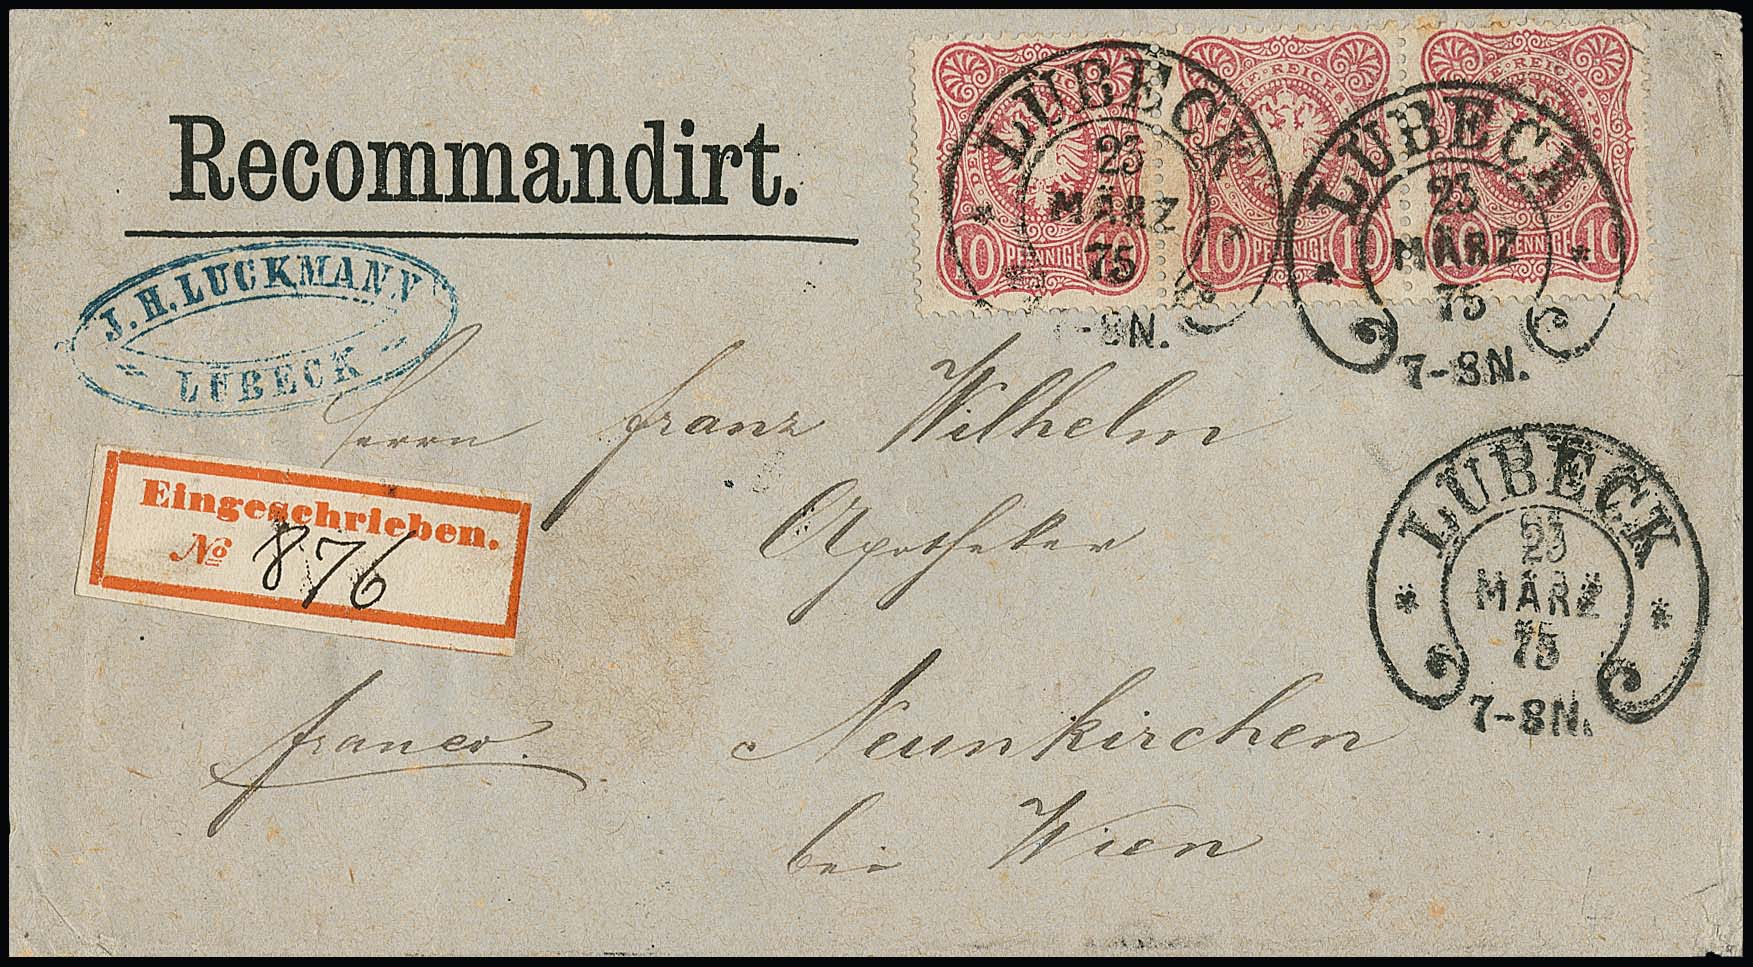 Recommandirt.
J. H. LUCKMANN
LÜBECK
Eingeschrieben.
No 876
Herrn Franz Wilhelm
Apotheker
franco.
Neunkirchen
bei Wien
10 PFENNIGE 10
10 PFENNIGE 10
10 PFENNIGE 10
LÜBECK
23
MÄRZ
75
7-8N.
LÜBECK
23
MÄRZ
75
7-8N.
LÜBECK
23
MÄRZ
75
7-8N.